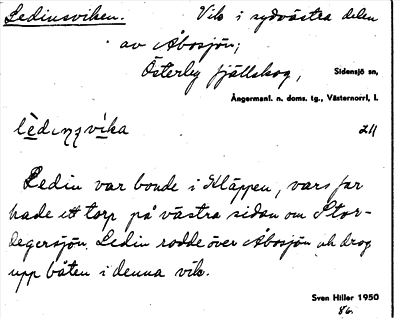 Ledinsviken. Vik i sydvästra delen
av Åbosjön;
Österby fjällskog, Sidensjö sn,
Ångermanl. n. doms. tg., Västernorrl. l.
lèdıŋvika 2ll
Ledin var bonde i Kläppen, vars far
hade ett torp på västra sidan om Stor-
degersjön. Ledin rodde över Åbosjön och drog
upp båten i denna vik.
Sven Hiller 1950
86.